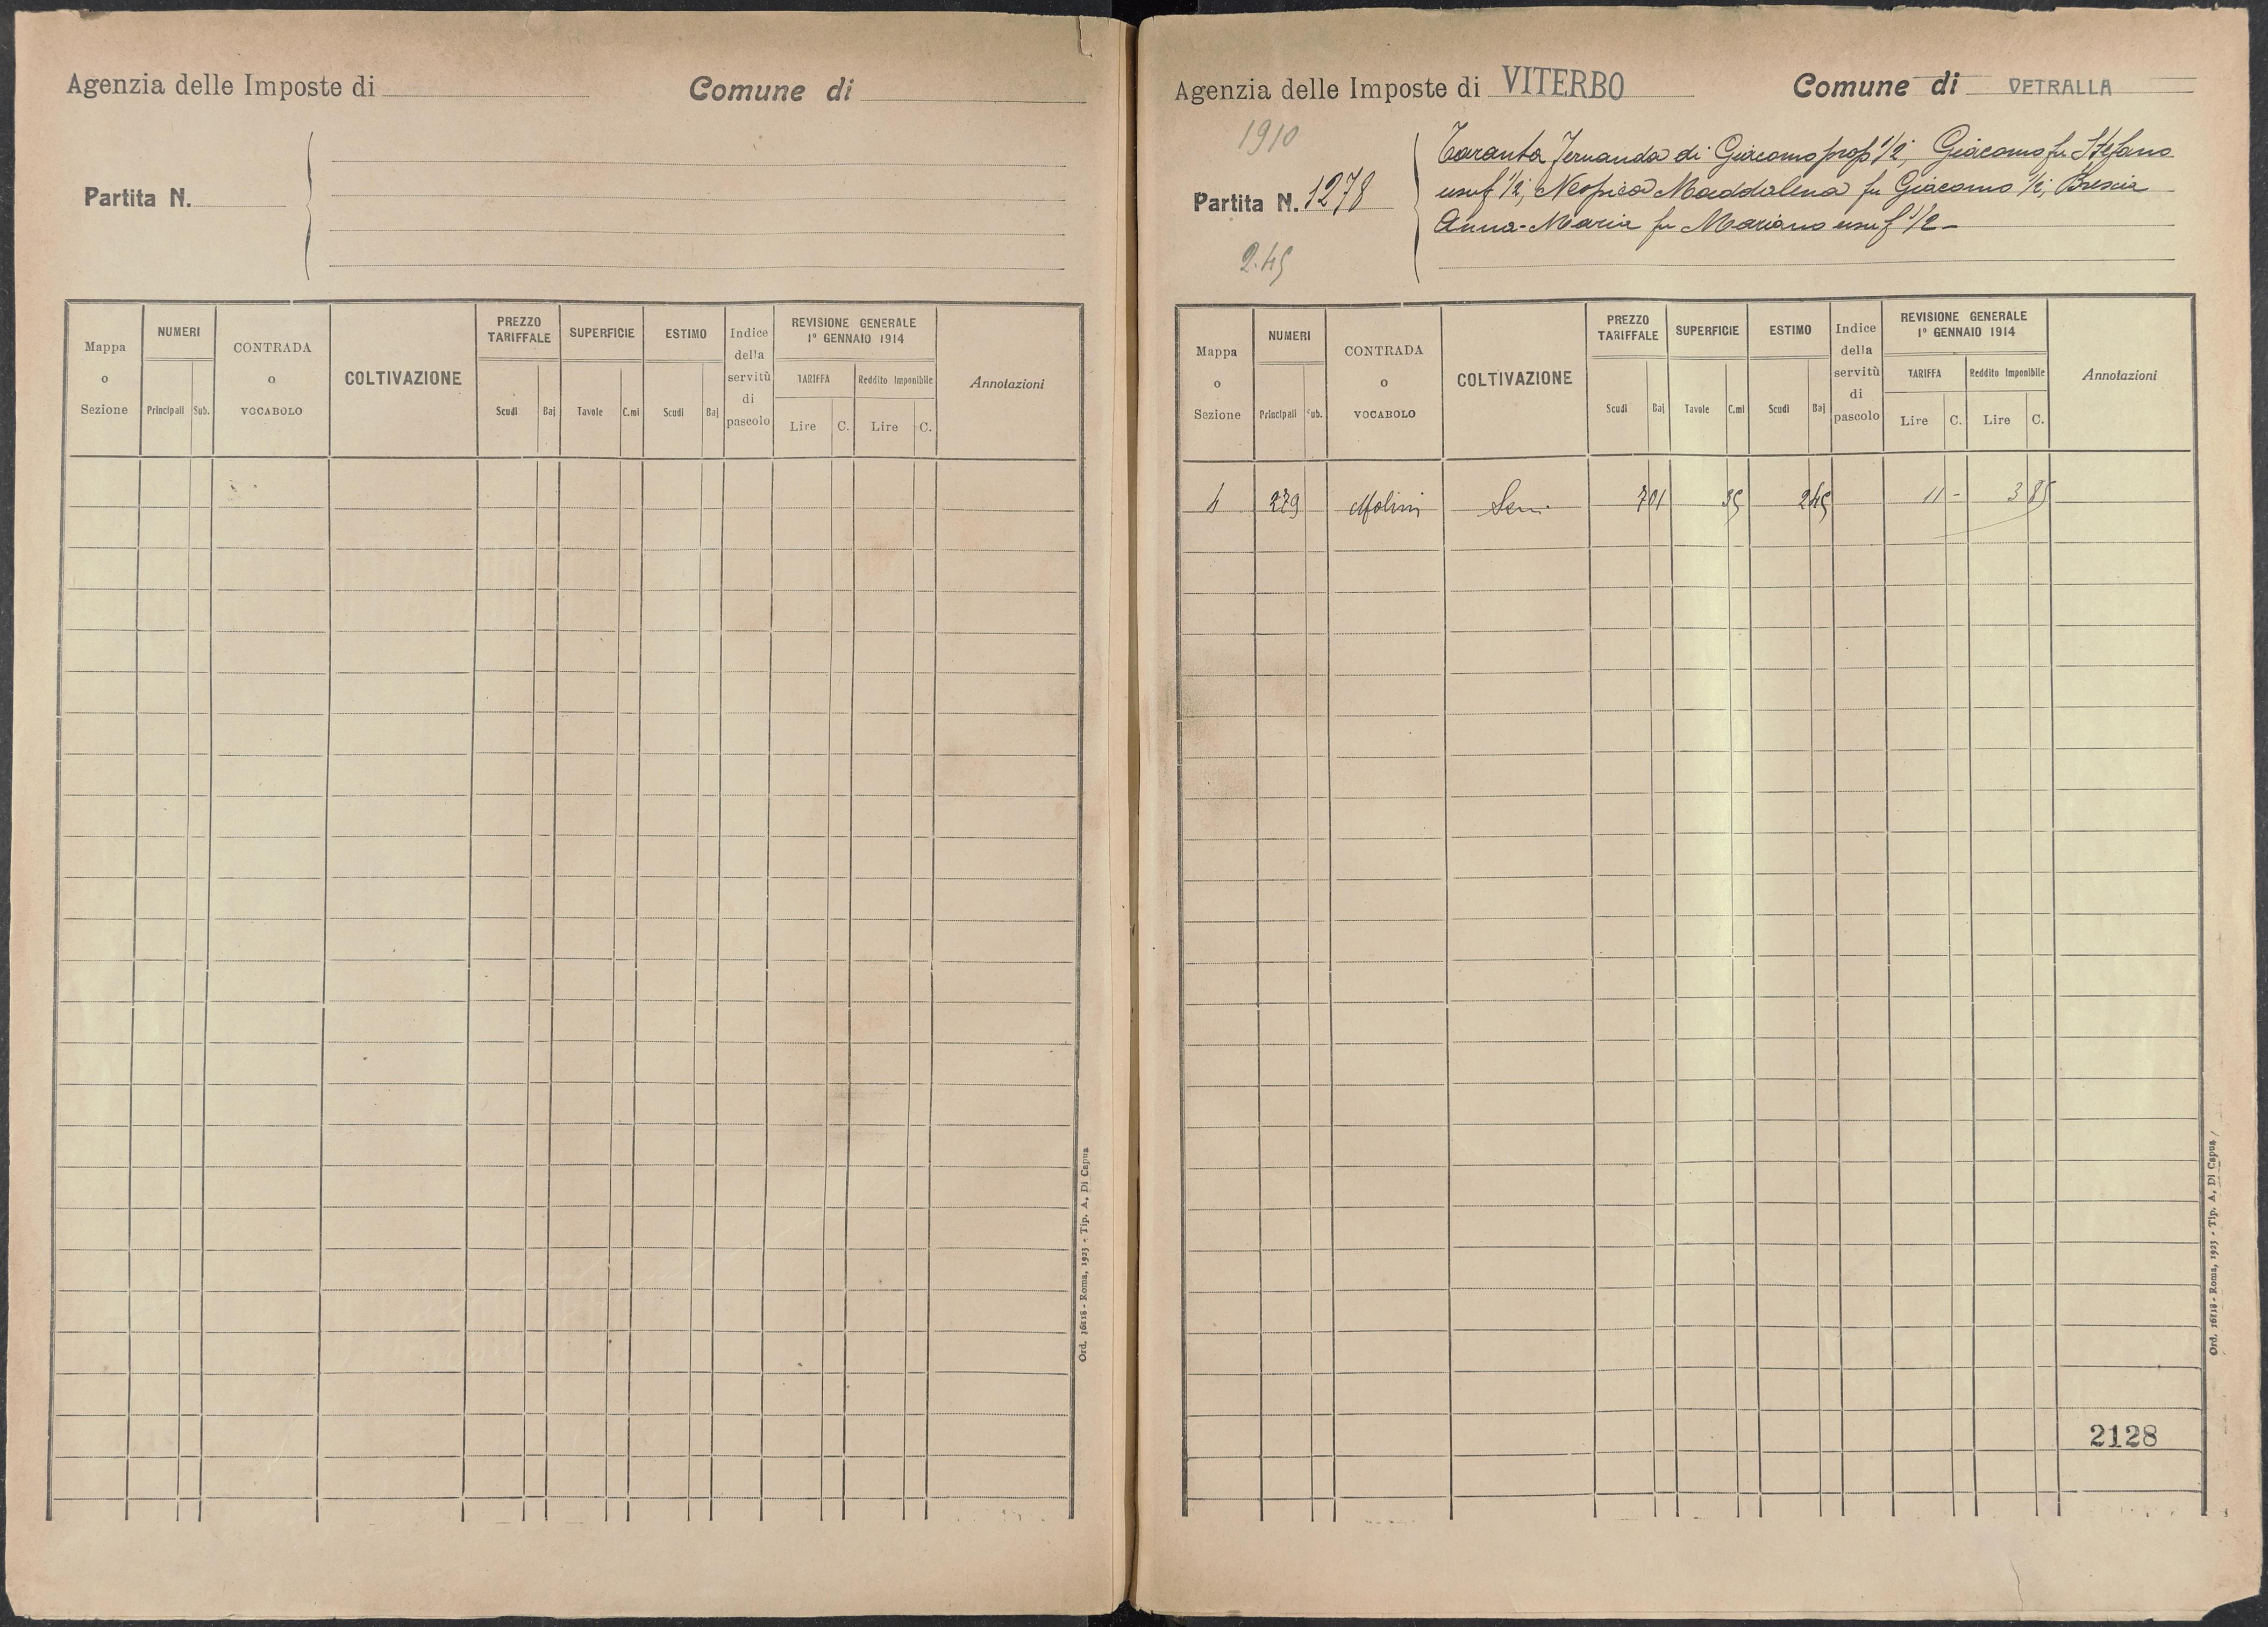 Agenzia delle Imposte di
Comune di
Partita N.
Mappa o Sezione
NUMERI
Principali Sub.
CONTRADA o VOCABOLO
COLTIVAZIONE
PREZZO TARIFFALE
Scudi Baj
SUPERFICIE
Tavole C.mi
ESTIMO
Scudi Baj
Indice della servitù di pascolo
REVISIONE GENERALE
1° GENNAIO 1914
TARIFFA
Lire C.
Reddito Imponibile
Lire C.
Annotazioni
Ord. 16118 - Roma, 1923 - Tip. A. Di Capua
Agenzia delle Imposte di VITERBO
Comune di VETRALLA
1910
Partita N. 1278
2.45
Taranta Fernanda di Giacomo prop 1/2, Giacomo fu Stefano
usuf 1/2; Maddalena fu Giacomo 1/2; Brescia
Anna-Maria fu Mariano usuf 1/2-
Mappa o Sezione
NUMERI
Principali Sub.
CONTRADA o VOCABOLO
COLTIVAZIONE
PREZZO TARIFFALE
Scudi Baj
SUPERFICIE
Tavole C.mi
ESTIMO
Scudi Baj
Indice della servitù di pascolo
REVISIONE GENERALE
1° GENNAIO 1914
TARIFFA
Lire C.
Reddito Imponibile
Lire C.
Annotazioni
4 279 Molini Sem. 701 35 245 11 - 3 85
2128
Ord. 16118 - Roma, 1923 - Tip. A. Di Capua